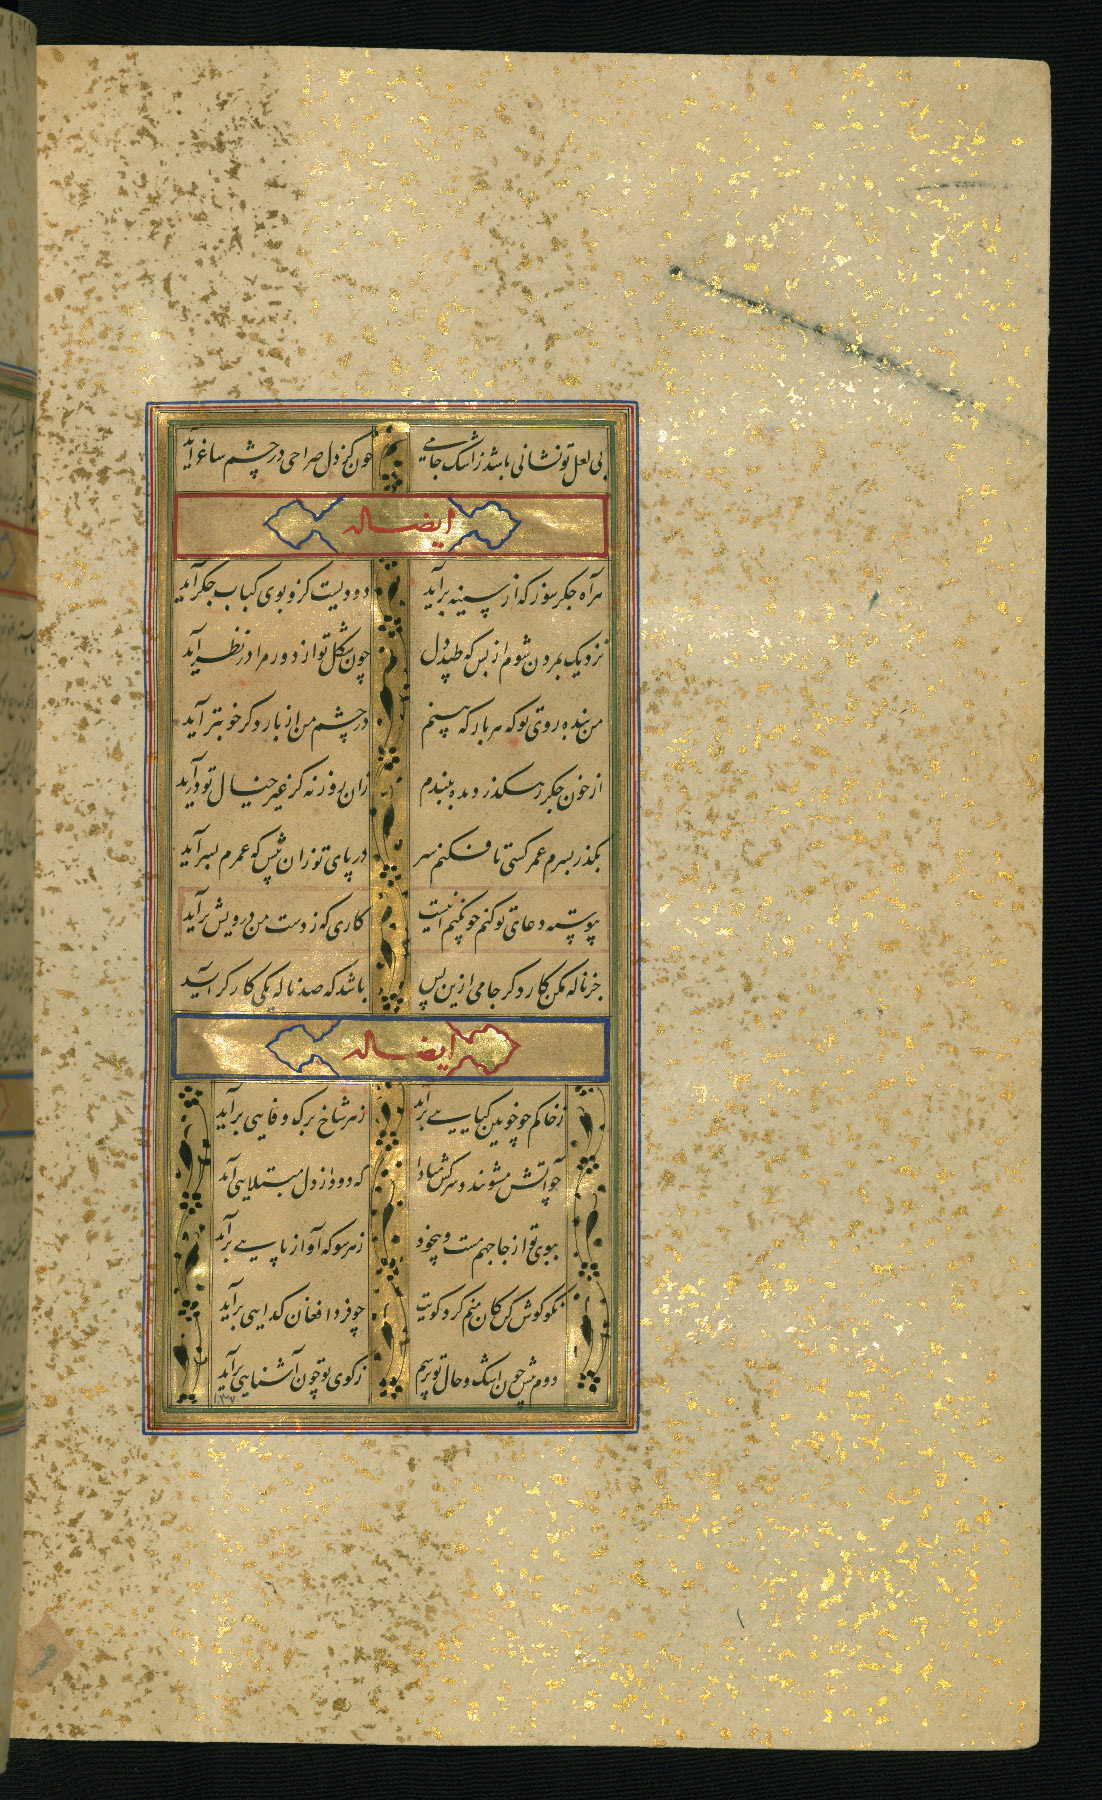 بی لعل تو نشانی باشد ز اشک جامی خون کز دل صراحی در چشم ساغر آید
ایضاله
هر آه جگرسوز که از سینه برآید دودیست کزو بوی کباب جگر آید
نزدیک بمردن شوم از بس که طپد دل چون شکل تو از دور مرا در نظر آید
من بنده روی تو که هر بار که بینم در چشم من از بار دگر خوبتر آید
از خون جگر رهگذر دیده ببندم زان روزنه گر غیر خیال تو درآید
بگذر بسرم عمر کسی تا فکنم سر در پای تو زان پس که عمرم بسر آید
پیوسته دعای تو کنم چون کنم اینست کاری که ز دست من درویش برآید
جز ناله مکن کار دگر جامی ازین پس باشد که صد ناله یکی کارگر آید
ایضاله
ز خاکم چو خونین گیاهی برآید ز هر شاخ برگ وفایی برآید
چو آتش مشو تند و سرکش مبادا که دود از دل مبتلایی برآید
ببوی تو از جا جهم مست و بیخود ز هر سو که آواز پایی برآید
نکو گوش کن کان منم گرد کویت چو فردا فغان گدایی برآید
دوم پیش چون اشک و حال تو پرسم ز کوی تو چون آشنایی برآید